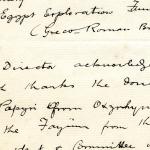 Egypt Exploration Fun
(Greco-Roman B
Director acknowledg
thanks the don
Papyri from Oxyrhyn
the Fayûm from th
Committee